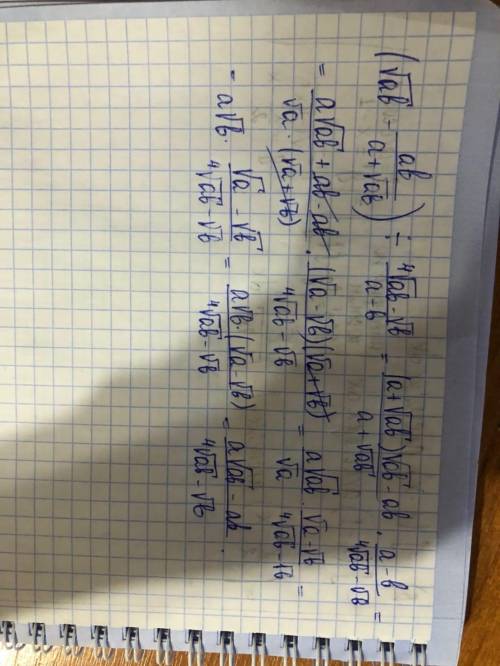 (√ab - ab/(a+√ab)) : (⁴√ab - √b)/(a-b) = ((a+√ab)√ab - ab)/(a+√ab) · (a-b)/(⁴√ab - √b) =
= (a√ab + ab - ab)/(√a · (√a+√b)) · ((√a-√b)(√a+√b))/(⁴√ab - √b) = a√ab/√a · (√a-√b)/(⁴√ab-√b) =
= a√b · (√a-√b)/(⁴√ab-√b) = a√b·(√a-√b)/(⁴√ab-√b) = (a√ab - ab)/(⁴√ab-√b).